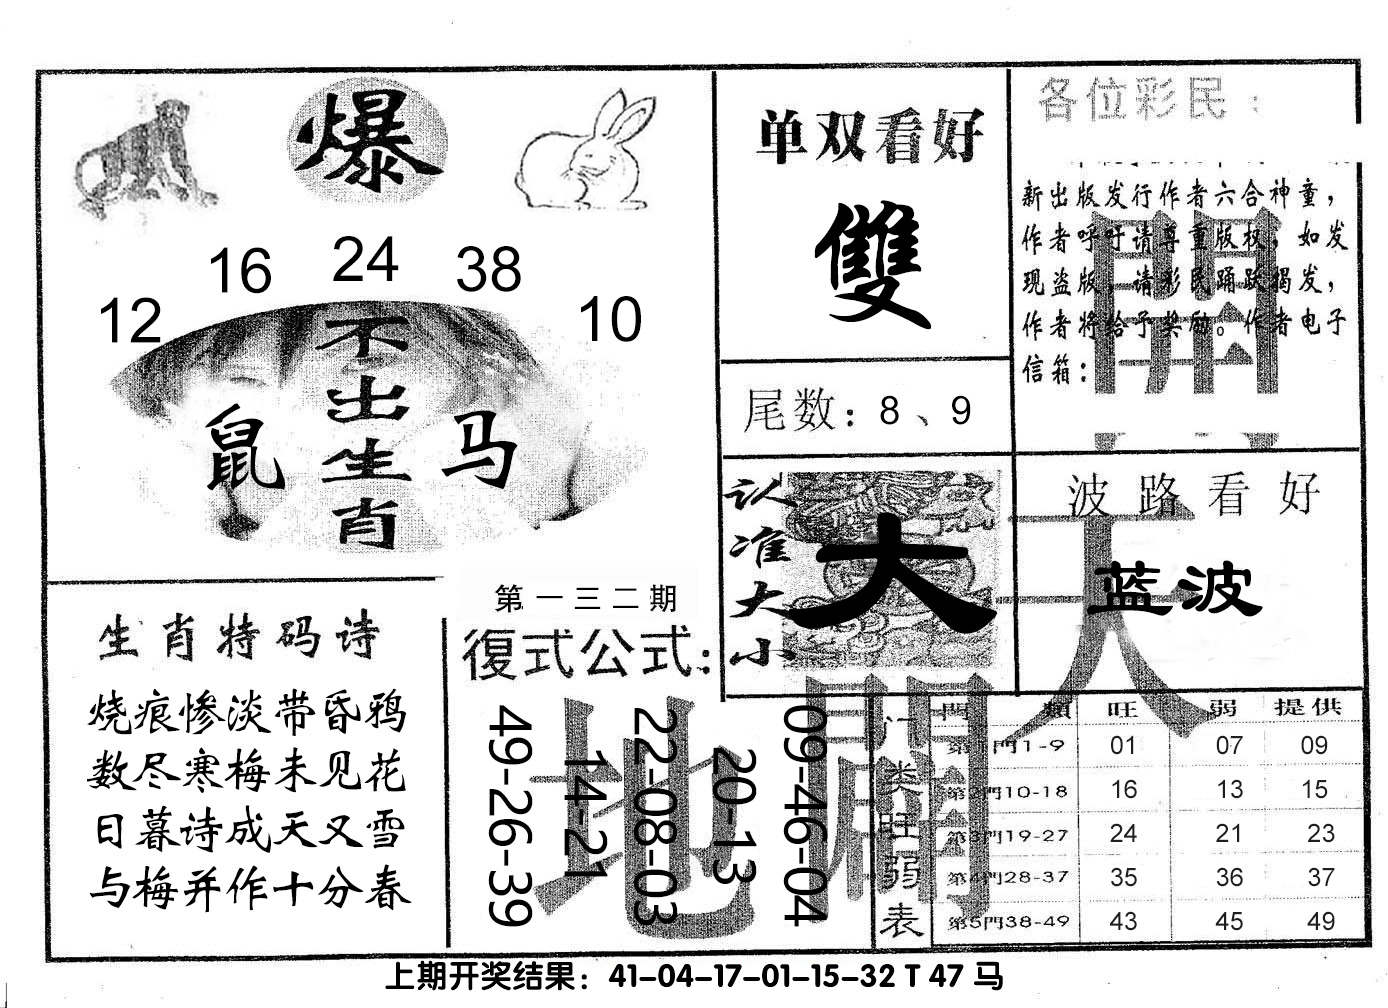 爆
12 16 24 38 10
不出生肖
鼠 马
生肖特码诗
烧痕惨淡带昏鸦
数尽寒梅未见花
日暮诗成天又雪
与梅并作十分春
第一三二期
復式公式：
49-26-39
14-21
22-08-03
20-13
09-46-04
单双看好
雙
尾数：8、9
认准大小
大
各位彩民：
新出版发行作者六合神童，
作者呼吁请尊重版权，如发
现盗版，请彩民踊跃揭发，
作者将给予奖励。作者电子
信箱：
波路看好
蓝波
天
地
門类旺弱表
門 類 旺 弱 提供
第1門1-9 01 07 09
第2門10-18 16 13 15
第3門19-27 24 21 23
第4門28-37 35 36 37
第5門38-49 43 45 49
上期开奖结果：41-04-17-01-15-32 T 47 马